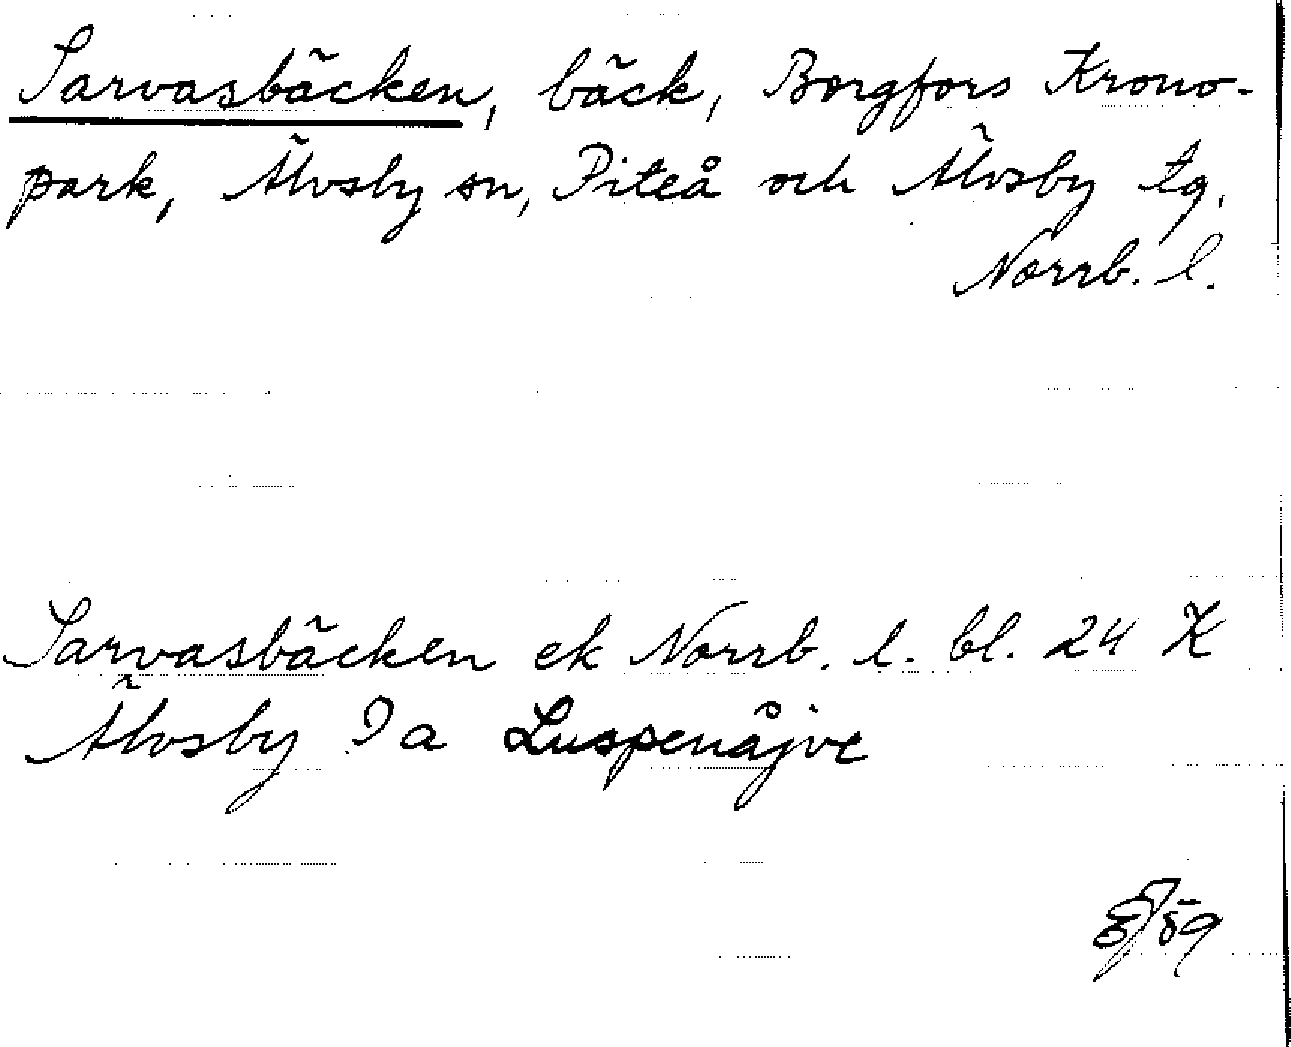 Sarvasbäcken, bäck, Borgfors Krono-
park, Älvsby sn, Piteå och Älvsby tg.
Norrb. l.
Sarvasbäcken ek Norrb. l. bl. 24 K
Älvsby 9 a Luspenåjve